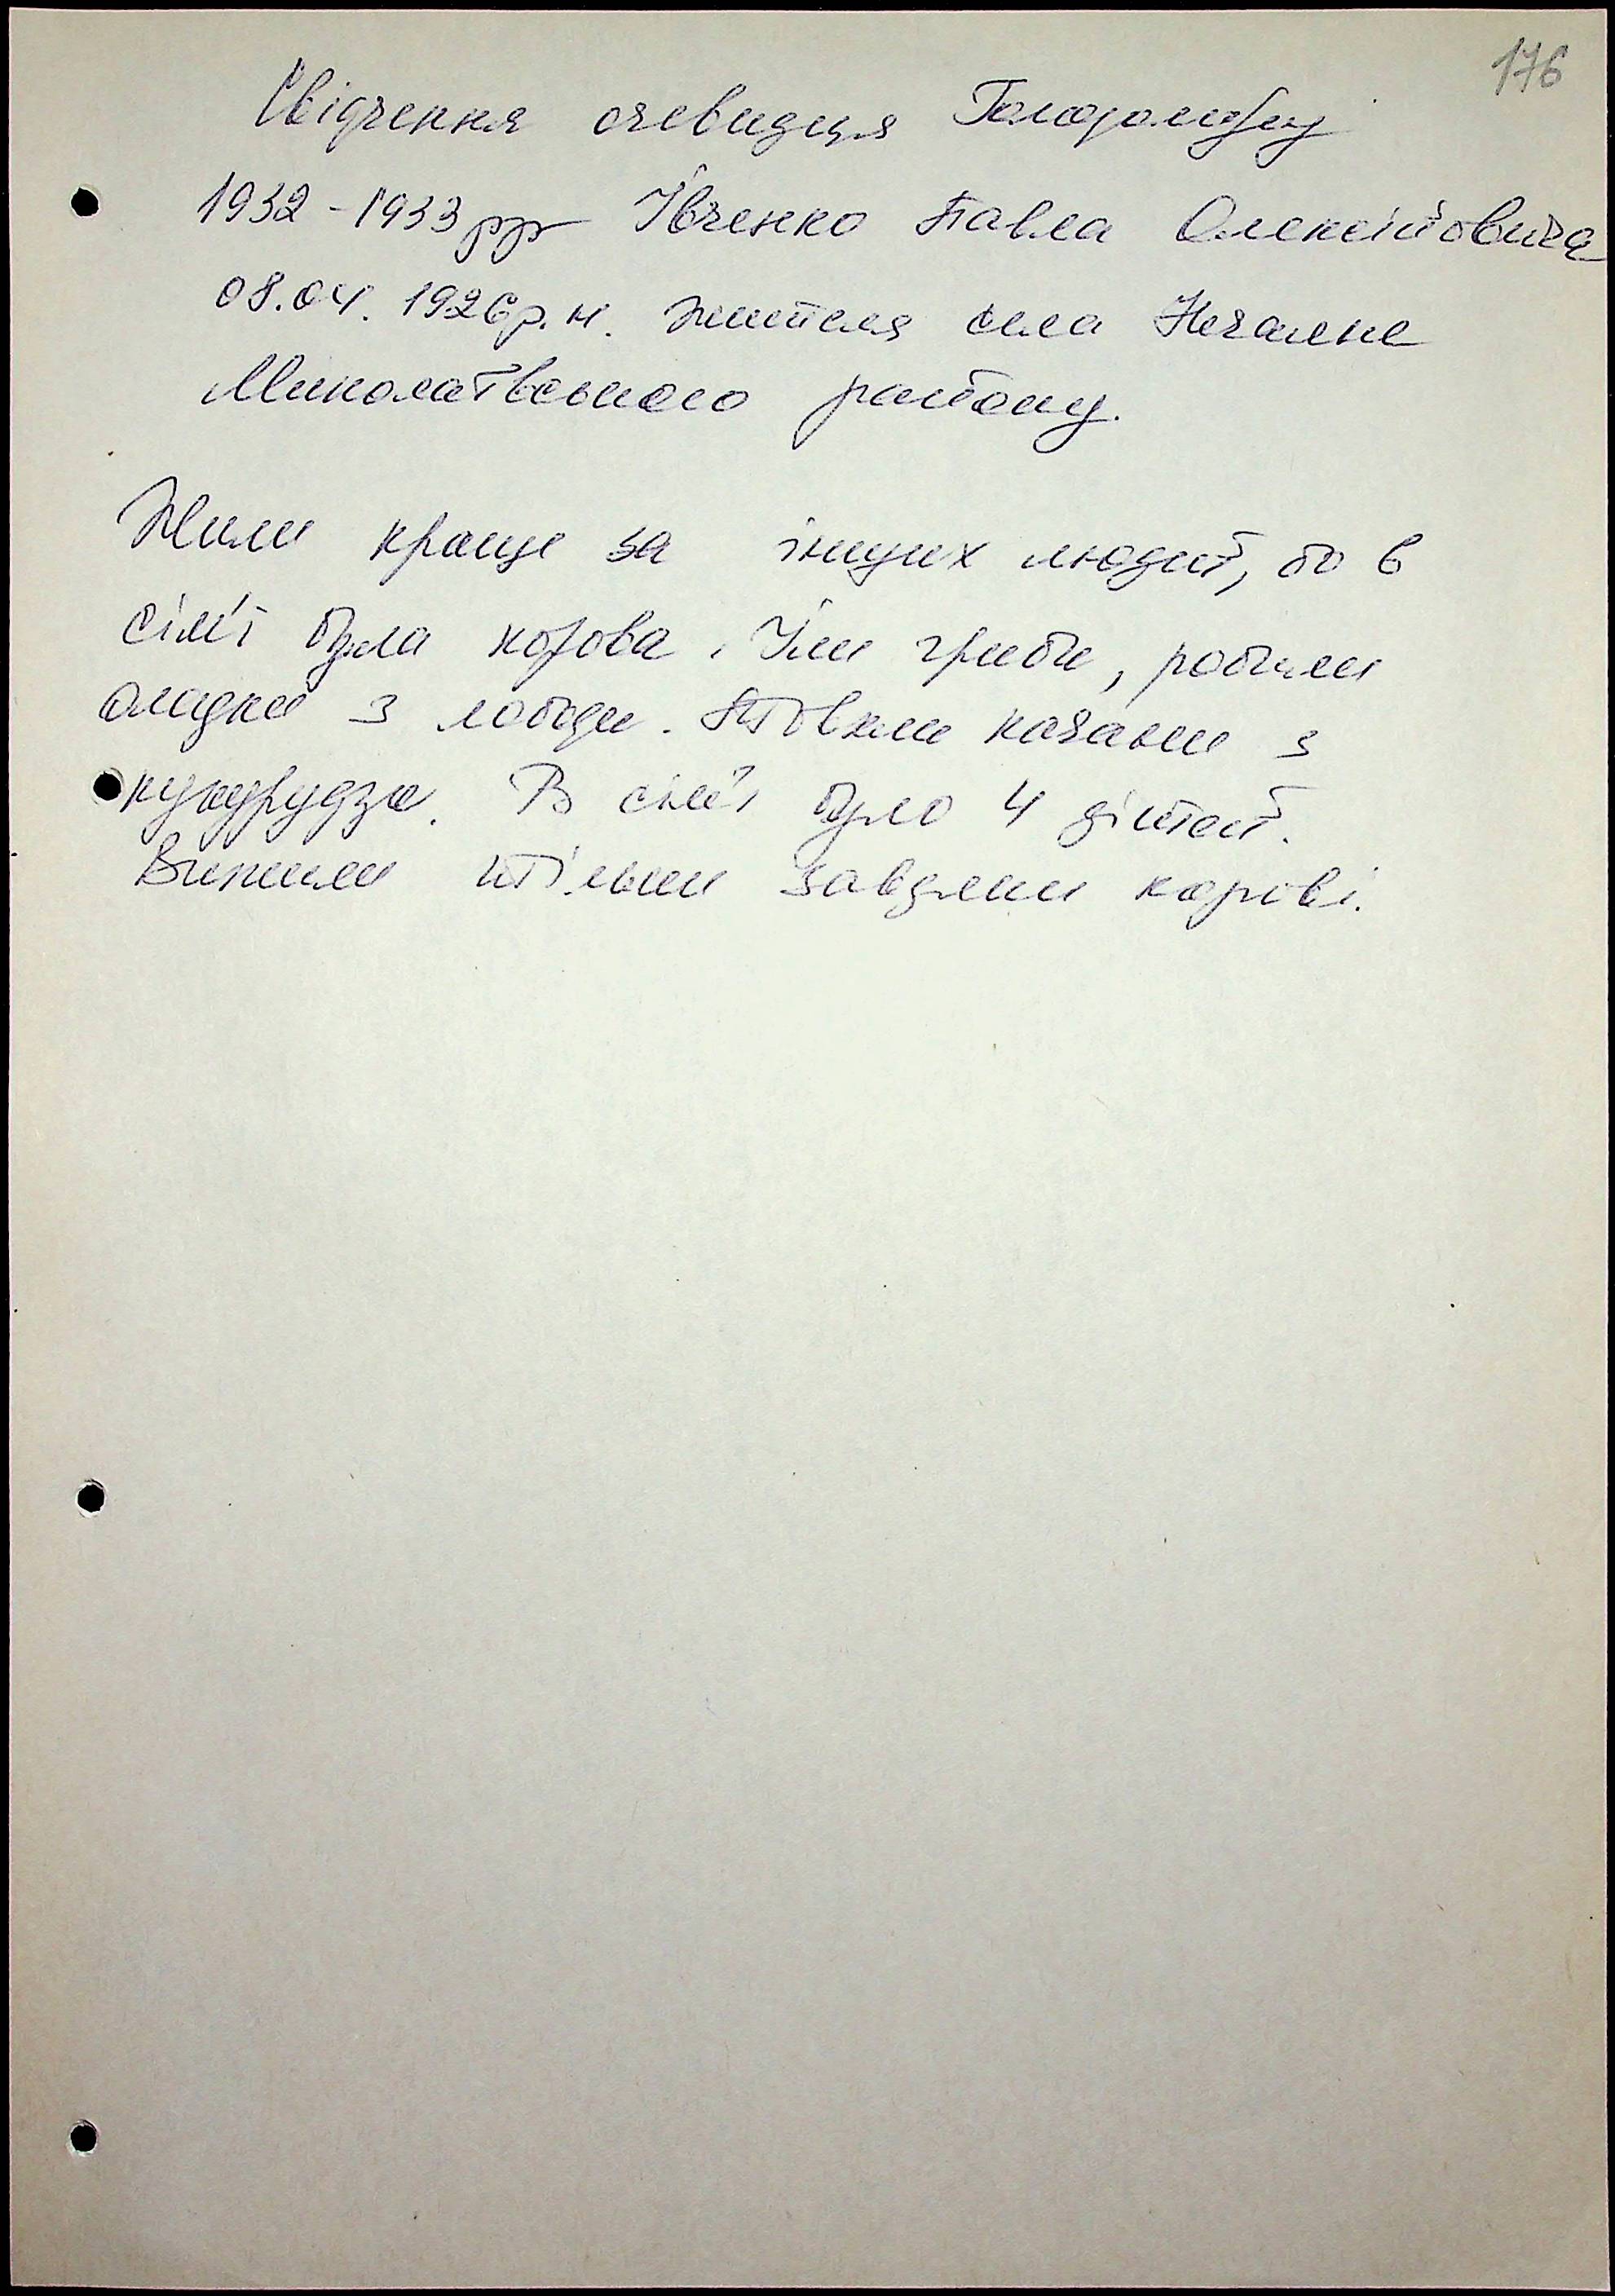 176
Свідчення очевидця Голодомору
1932-1933 рр Івченко Павла Олексійовича
08.04. 1926 р.н. жителя села Нечаяне
Миколаївського району.
Жили краще за інших людей, бо в
сім'ї була корова. Їли гриби, робили
оладки з лободи. Товкли качани з
кукурудзи. В сім'ї було 4 дітей.
Вижили тільки завдяки корові.